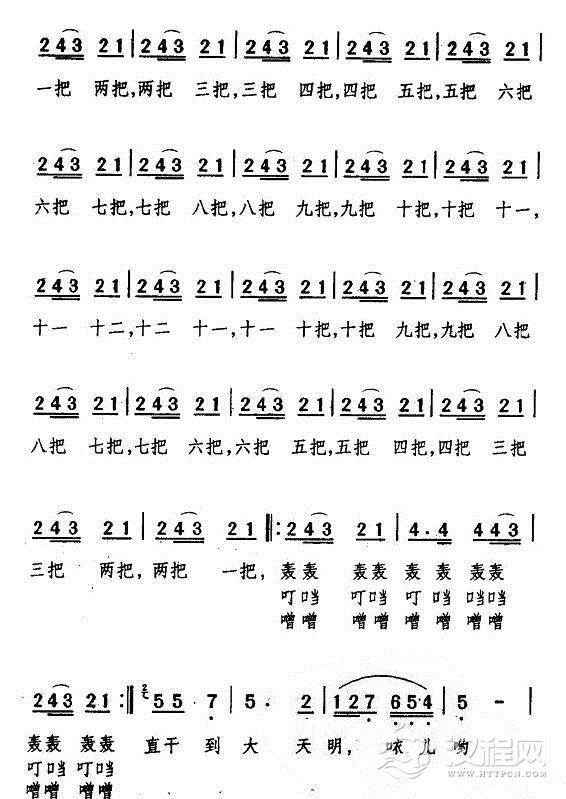 2 4 3 2 1 | 2 4 3 2 1 | 2 4 3 2 1 | 2 4 3 2 1 | 2 4 3 2 1 |
一把 两把,两把 三把,三把 四把,四把 五把,五把 六把
2 4 3 2 1 | 2 4 3 2 1 | 2 4 3 2 1 | 2 4 3 2 1 | 2 4 3 2 1 |
六把 七把,七把 八把,八把 九把,九把 十把,十把 十一,
2 4 3 2 1 | 2 4 3 2 1 | 2 4 3 2 1 | 2 4 3 2 1 | 2 4 3 2 1 |
十一 十二,十二 十一,十一 十把,十把 九把,九把 八把
2 4 3 2 1 | 2 4 3 2 1 | 2 4 3 2 1 | 2 4 3 2 1 | 2 4 3 2 1 |
八把 七把,七把 六把,六把 五把,五把 四把,四把 三把
2 4 3 2 1 | 2 4 3 2 1 ‖: 2 4 3 2 1 | 4 . 4 4 4 3 |
三把 两把,两把 一把, 轰轰 轰轰 轰 轰 轰轰
叮当 叮当 叮 当 当当
噌噌 噌噌 噌 噌 噌噌
2 4 3 2 1 :‖ 5 5 7 | 5 . 2 | 1 2 7 6 5 · 4 | 5 - |
轰轰 轰轰 直干 到 大 天 明, 哌 儿 哟
叮当 叮当
噌噌 噌噌
汉程网
WWW.HTTPCN.COM